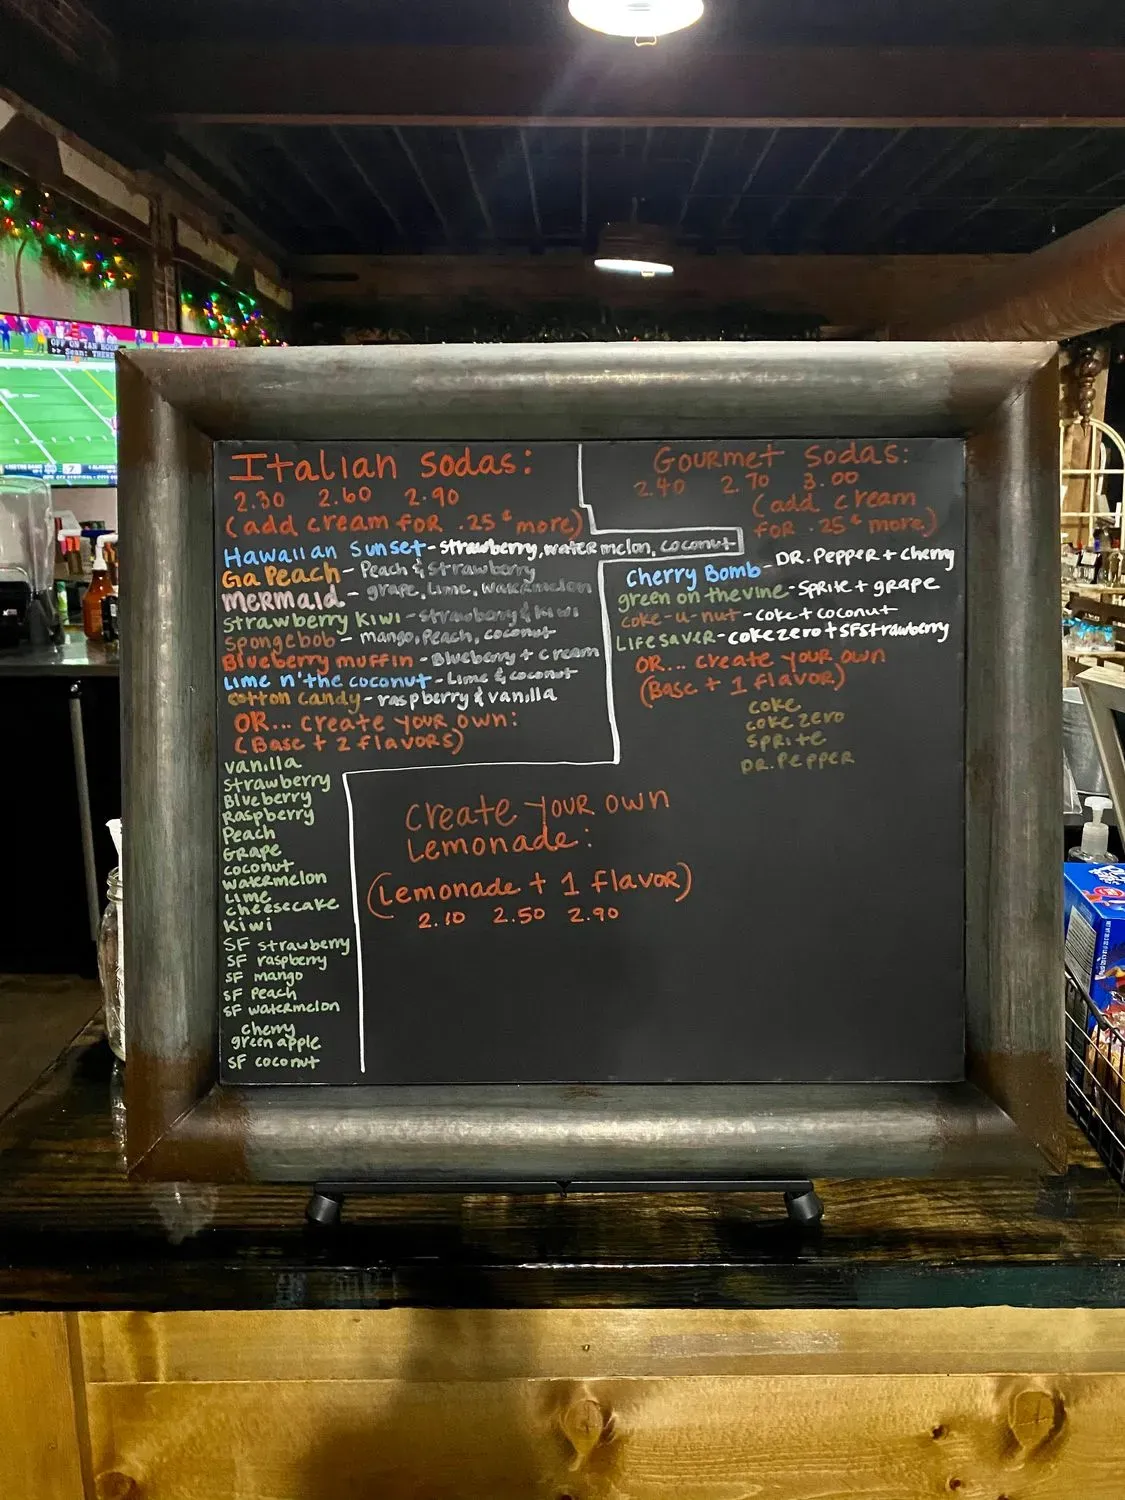 Italian Sodas:
2.30 2.60 2.90
(add cream for .25¢ more)
Hawaiian Sunset - strawberry, watermelon, coconut
Ga Peach - Peach & Strawberry
Mermaid - grape, Lime, watermelon
strawberry kiwi - Strawberry & kiwi
Spongebob - mango, Peach, coconut
Blueberry muffin - Blueberry + cream
Lime n' the coconut - Lime & coconut
cotton candy - raspberry & vanilla
OR... create your own:
(Base + 2 flavors)
vanilla
strawberry
Blueberry
Raspberry
Peach
Grape
coconut
watermelon
Lime
cheesecake
kiwi
SF strawberry
SF raspberry
SF mango
SF Peach
SF watermelon
cherry
green apple
SF coconut
Gourmet Sodas:
2.40 2.70 3.00
(add cream
for .25¢ more)
Cherry Bomb - DR. Pepper + cherry
green on the vine - Sprite + grape
coke-u-nut - coke + coconut
Lifesaver - coke zero + SF Strawberry
OR... create your own
(Base + 1 flavor)
coke
coke zero
sprite
DR. Pepper
Create your own
Lemonade:
(Lemonade + 1 flavor)
2.10 2.50 2.90